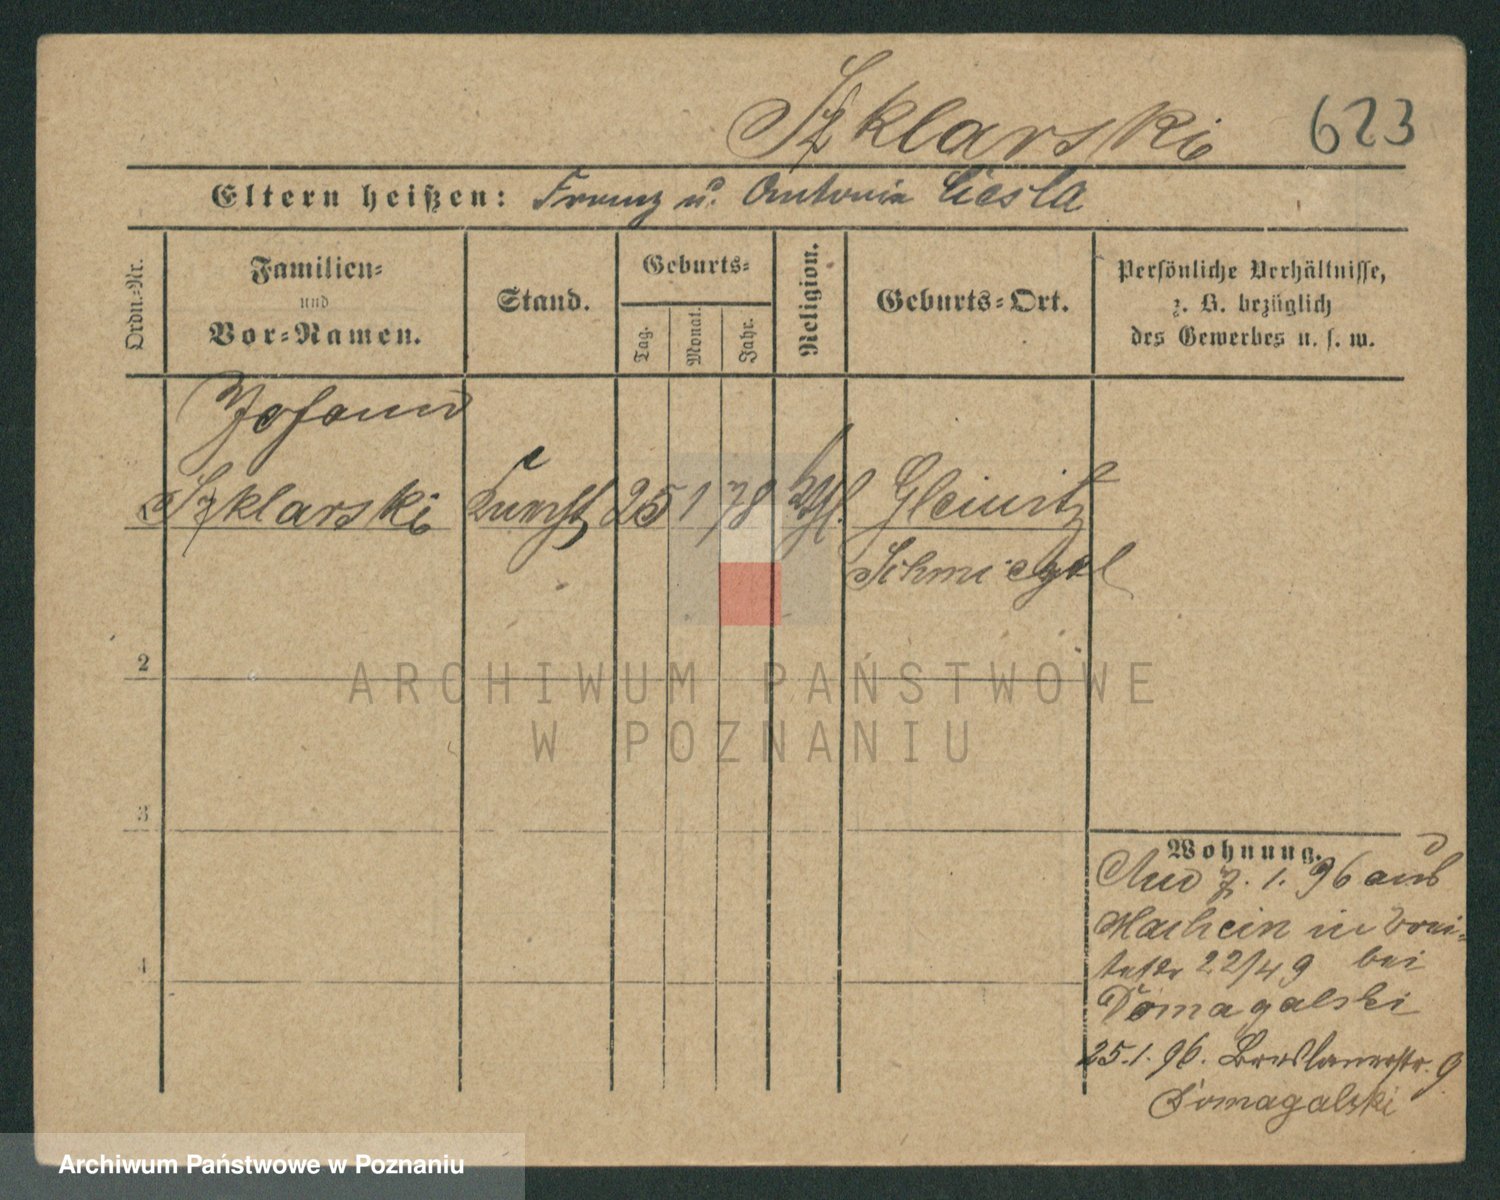 Szklarski 623
Eltern heißen: Franz u. Antonia Ciesla
Ordn.-Nr.
Familien-
und
Vor-Namen.
Stand.
Geburts-
Tag.
Monat.
Jahr.
Religion.
Geburts-Ort.
Persönliche Verhältnisse,
z. B. bezüglich
des Gewerbes u. s. w.
Johann
Szklarski Knecht 25 1 78 kth. Gleinitz
Schmiegel
2
3
4
ARCHIWUM PAŃSTWOWE
W POZNANIU
Wohnung.
7. 1. 96 aus
in
22/49 bei
Domagalski
25.1.96. Breslauerstr. 9
Domagalski
Archiwum Państwowe w Poznaniu